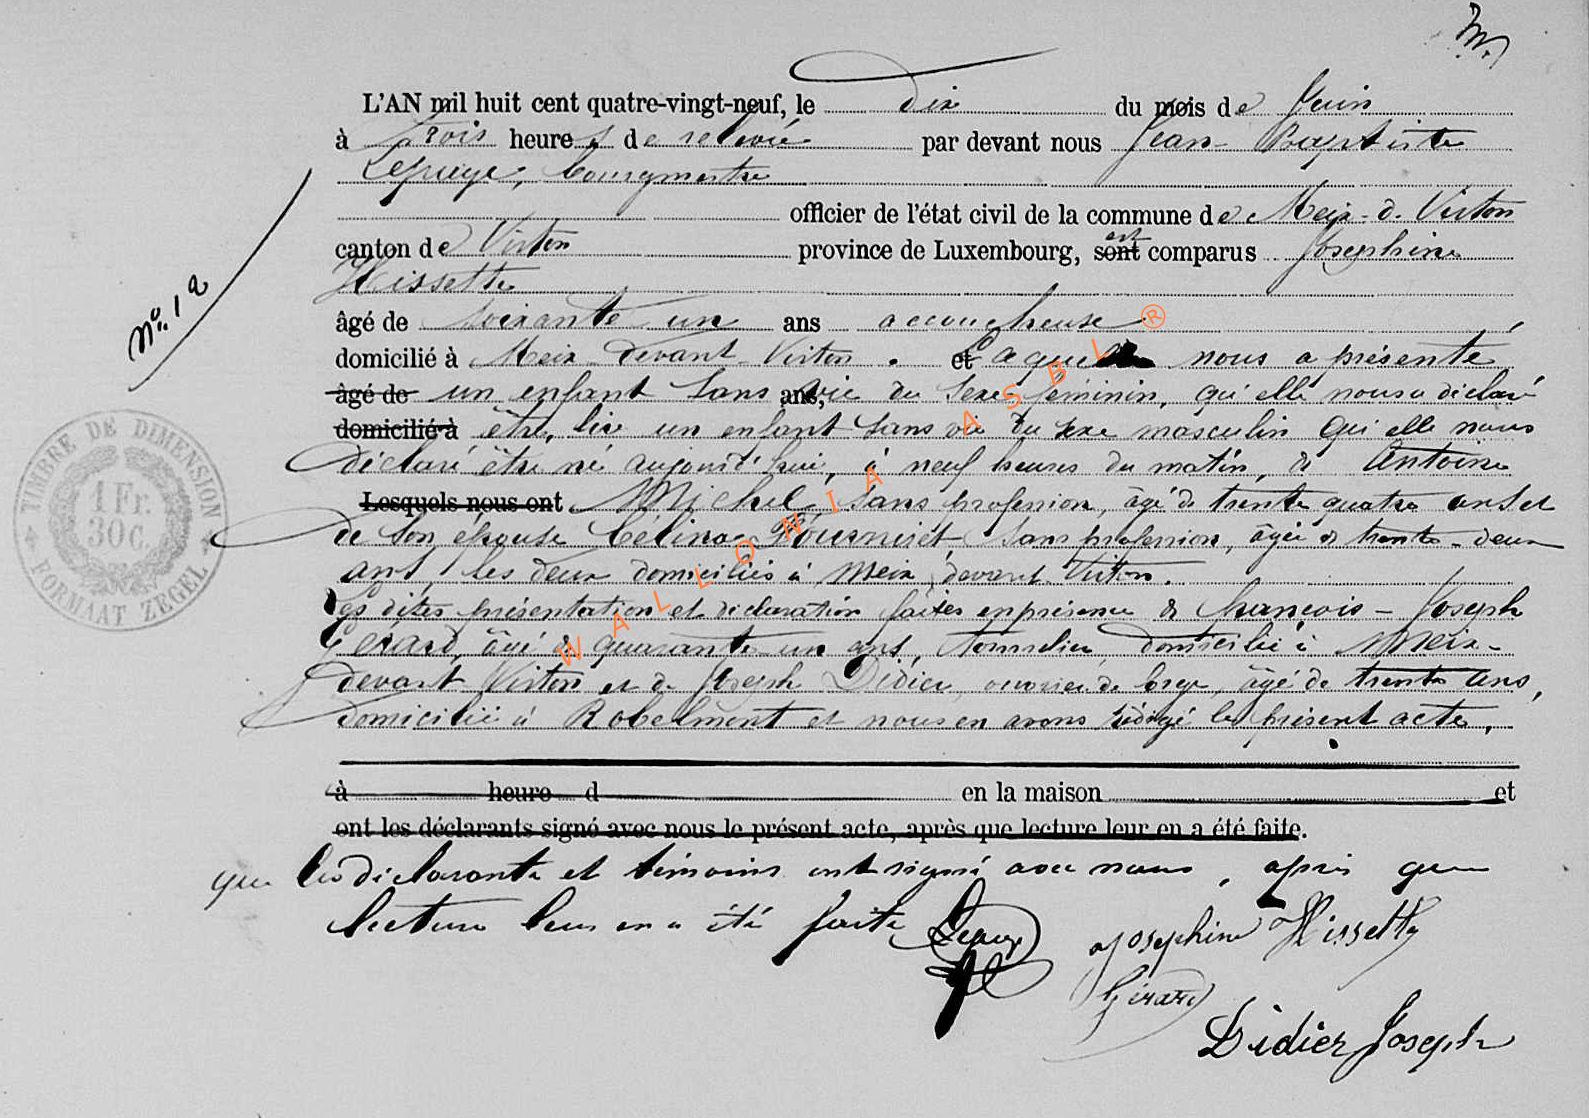 L'AN mil huit cent quatre-vingt-neuf, le dix du mois de Juin
à trois heures de relevée par devant nous Jean-Baptiste
Bourgmestre
officier de l'état civil de la commune de Meix-d-Virton
canton de Virton province de Luxembourg, sont est comparus Josephine
Hissette
No. 12
âgé de soixante un ans accoucheuse
domicilié à Meix-devant-Virton. et Laquelle nous a présenté
âgé de un enfant sans ans, vie du sexe féminin, qu'elle nous a déclaré
domicilié à être, lire un enfant sans vie du sexe masculin qui elle nous
déclaré être né aujourd'hui, à neuf heures du matin, de Antoine
Lesquels nous ont Michel, sans profession, âgé de trente quatre ans et
de son épouse Célina Fourniret, sans profession, âgée de trente-deux
ans, les deux domiciliés à Meix, devant Virton.
Les dites présentation et déclaration faites en présence de François-Joseph
Gérard, âgé de quarante un ans, tonnelier, domicilié à Meix-
devant Virton et de Joseph Didier, ouvrier de forge, âgé de trente ans,
domicilié à Robelmont et nous en avons rédigé le présent acte,
à heure d en la maison et
ont les déclarants signé avec nous le présent acte, après que lecture leur en a été faite.
que les déclarante et témoins ont signé avec nous, après que
lecture leur en a été faite
Josephine Hissette
Gérard
Didier Joseph
TIMBRE DE DIMENSION
1 Fr.
30 C.
FORMAAT ZEGEL
WALLONIA ASBL ®